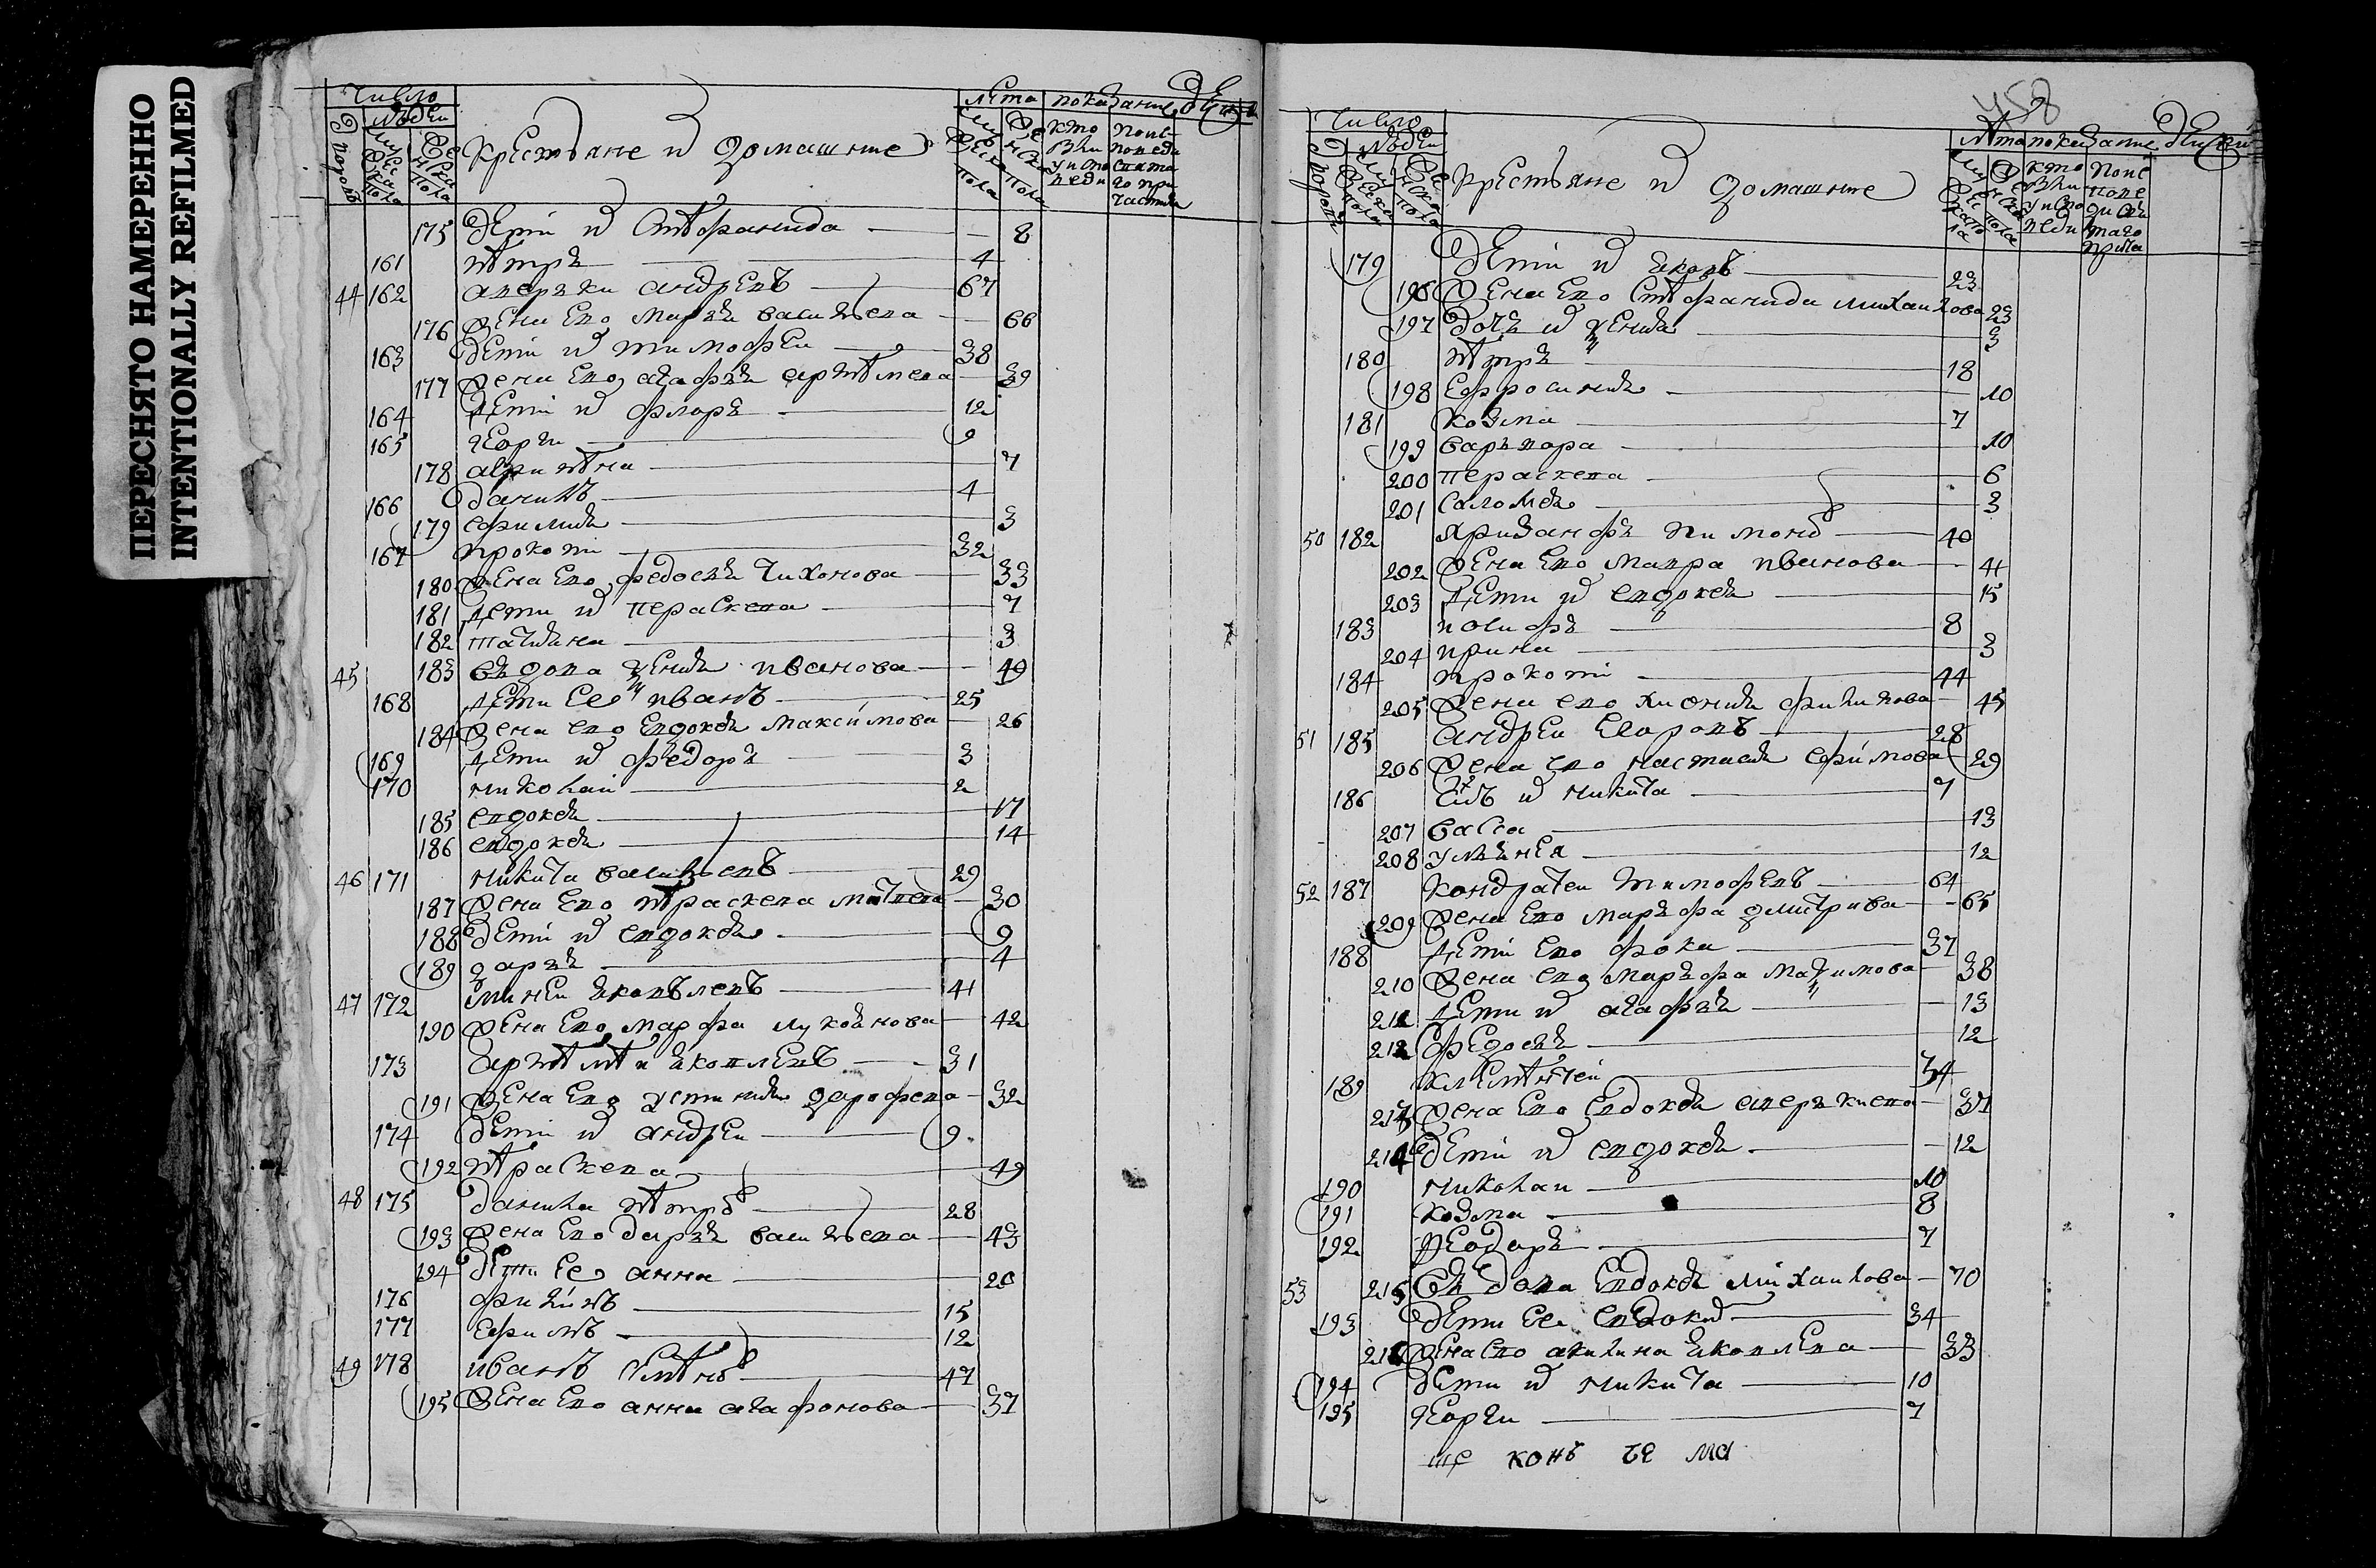 ПЕРЕСНЯТО НАМЕРЕННО
INTENTIONALLY REFILMED
Число
людеи
Крестьяне и домашние
лета показание
175 дети и Стефанида 8
161 петръ 4
44 162 аверъки андреевъ 67
176 жена ево маръя васильева 66
163 дети и тимофеи 38
177 жена ево агафья артемева 39
164 дети и флоръ 12
165 георги 9
178 агрипена 7
166 данилъ 4
179 ефимия 3
167 прокопи 32
180 жена ево федосья тихонова 33
181 дети и пераскева 7
182 татияна 3
45 183 въдова ксения иванова 49
168 дети ее иванъ 25
184 жена ево евдокея максимова 26
169 дети и федоръ 3
170 николаи 2
185 евдокея 17
186 евдокея 14
46 171 никита васильевъ 29
187 жена ево параскева матвеева 30
188 дети и евдокея 9
189 дарья 4
47 172 минеи яковълевъ 41
190 жена ево марфа лукоянова 42
173 артемеи яковлевъ 31
191 жена ево устиния дорофева 32
174 дети и андреи 9
192 параскева 49
48 175 данила петровъ 28
193 жена ево даръя васильева 43
194 дети ее анна 20
176 филипъ 15
177 ефимъ 12
49 178 иванъ семеновъ 47
195 жена ево анна агафонова 37
458
Число
людеи
Крестьяне и домашние
лета показание
179 дети и яковъ 23
196 жена ево стефанида михаилова 23
197 дочь и ксения 3
180 петръ 18
198 ефросиния 10
181 козма 7
199 варъвара 10
200 пераскева 6
201 саломея 3
50 182 хрисанфъ пимоновъ 40
202 жена ево мавра иванова 41
203 дети и евдокея 15
183 иосифъ 8
204 ирина 3
184 прокопи 44
205 жена ево хиония филипова 45
51 185 андреи егоровъ 28
206 жена ево настасия ефимова 29
186 сынъ и никита 7
207 васса 13
208 улиянея 12
52 187 кондратеи тимофеевъ 64
209 жена ево маръфа дмитрива 65
188 дети ево фока 37
210 жена ево маръфа максимова 38
211 дети и агафья 13
212 федосья 12
189 клементеи 34
213 жена ево евдокея аверъкиева 37
214 дети и евдокея 12
190 николаи 10
191 козма 8
192 феодоръ 7
53 215 въдова евдокея михаилова 70
193 дети ее евдоким 34
216 жена ево акилина яковлева 33
194 дети и никита 10
195 георги 7